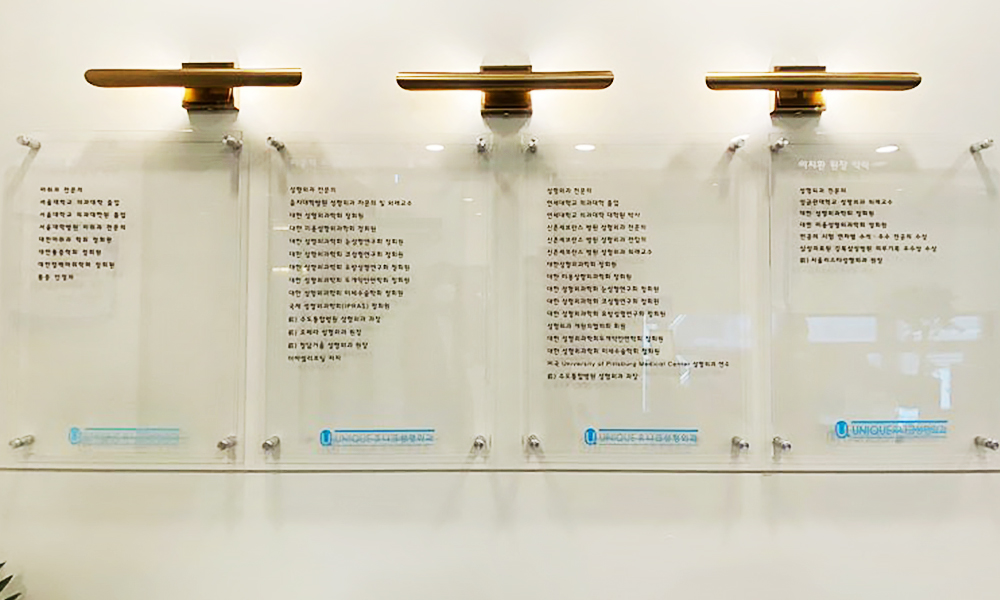 마취과 전문의
서울대학교 의과대학 졸업
서울대학교 의과대학원 졸업
서울대학병원 마취과 전문의
대한마취과 학회 정회원
대한통증학회 정회원
대한정맥마취학회 정회원
통증 인정의
UNIQUE 유니크성형외과
성형외과 전문의
을지대학병원 성형외과 자문의 및 외래교수
대한 성형외과학회 정회원
대한 미용성형외과학회 정회원
대한 성형외과학회 눈성형연구회 정회원
대한 성형외과학회 코성형연구회 정회원
대한 성형외과학회 유방성형연구회 정회원
대한 성형외과학회 두개악안면학회 정회원
대한 성형외과학회 미세수술학회 정회원
국제 성형외과학회(IPRAS) 정회원
前) 수도통합병원 성형외과 과장
前) 오페라 성형외과 원장
前) 청담겨울 성형외과 원장
UNIQUE 유니크성형외과
성형외과 전문의
연세대학교 의과대학 졸업
연세대학교 의과대학 대학원 석사
신촌세브란스 병원 성형외과 전문의
신촌세브란스 병원 성형외과 전임의
신촌세브란스 병원 성형외과 외래교수
대한성형외과학회 정회원
대한 미용성형외과학회 정회원
대한 성형외과학회 눈성형연구회 정회원
대한 성형외과학회 코성형연구회 정회원
대한 성형외과학회 유방성형연구회 정회원
성형외과 개원의협의회 회원
대한 성형외과학회두개악안면학회 정회원
대한 성형외과학회 미세수술학회 정회원
미국 University of Pittsburg Medical Center 성형외과 연수
前) 수도통합병원 성형외과 과장
UNIQUE 유니크성형외과
이지환 원장 약력
성형외과 전문의
성균관대학교 성형외과 외래교수
대한 성형외과학회 정회원
대한 미용성형외과학회 정회원
전공의 시험 연차별 수석·우수 전공의 수상
삼성의료원 강북삼성병원 의무기록 우수상 수상
前) 서울리즈타성형외과 원장
UNIQUE 유니크성형외과